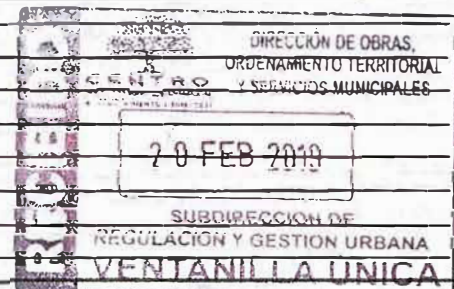 DIRECCIÓN DE OBRAS,
ORDENAMIENTO TERRITORIAL
Y SERVICIOS MUNICIPALES
CENTRO
20 FEB 2019
SUBDIRECCION DE
REGULACION Y GESTION URBANA
VENTANILLA UNICA